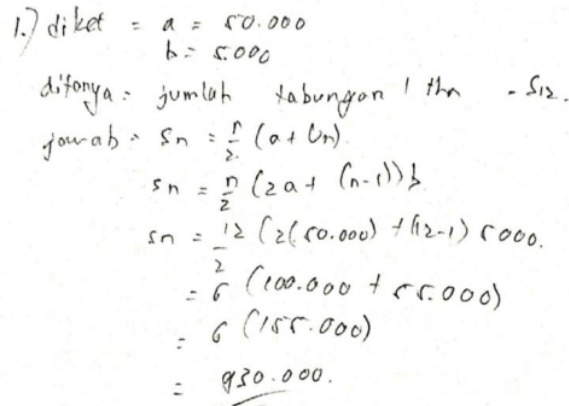 1.) diket = a = 50.000
b = 5.000
ditanya = jumlah tabungan 1 thn - S12.
jawab = Sn = n/2 (a + Un)
Sn = n/2 (2a + (n-1)) b
Sn = 12/2 (2(50.000) + (12-1) 5000.
= 6 (100.000 + 55.000)
= 6 (155.000)
= 930.000.